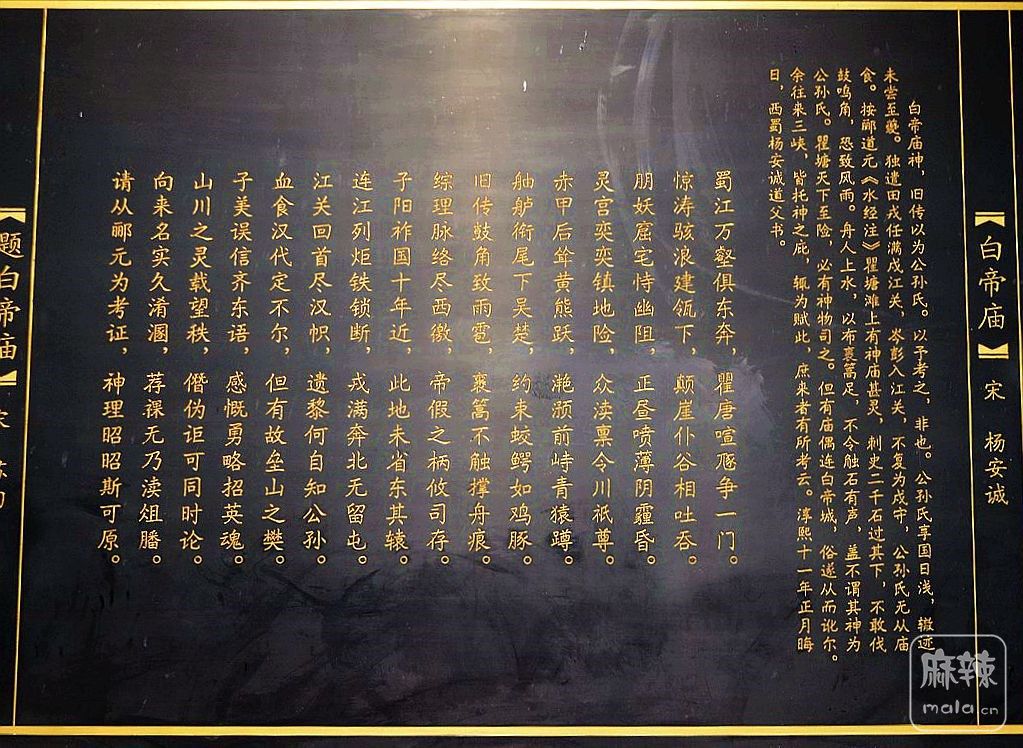 【白帝庙】 宋 杨安诚
白帝庙神，旧传以为公孙氏。以予考之，非也。公孙氏享国日浅，辙迹
未尝至夔。独遣田戎任满戍江关，岑彭入江关，不复为戍守，公孙氏无从庙
食。按郦道元《水经注》瞿塘滩上有神庙甚灵，刺史二千石过其下，不敢伐
鼓鸣角，恐致风雨。舟人上水，以布裹篙足，不令触石有声，盖不谓其神为
公孙氏。瞿塘天下至险，必有神物司之。但有庙偶连白帝城，俗遂从而讹尔。
余往来三峡，皆托神之庇，辄为赋此，庶来者有所考云。淳熙十一年正月晦
日，西蜀杨安诚道父书。
蜀江万壑俱东奔，瞿唐喧豗争一门。
惊涛骇浪建瓴下，颠崖仆谷相吐吞。
朋妖窟宅恃幽阻，正昼喷薄阴霾昏。
灵宫奕奕镇地险，众渎禀令川祇尊。
赤甲后耸黄熊跃，滟滪前峙青猿蹲。
舳舻衔尾下吴楚，约束蛟鳄如鸡豚。
旧传鼓角致雨雹，裹篙不触撑舟痕。
综理脉络尽西徼，帝假之柄攸司存。
子阳祚国十年近，此地未省东其辕。
连江列炬铁锁断，戎满奔北无留屯。
江关回首尽汉帜，遗黎何自知公孙。
血食汉代定不尔，但有故垒山之樊。
子美误信齐东语，感慨勇略招英魂。
山川之灵载望秩，僭伪讵可同时论。
向来名实久淆溷，荐祼无乃渎俎膰。
请从郦元为考证，神理昭昭斯可原。
题白帝庙】
麻辣
mala.cn